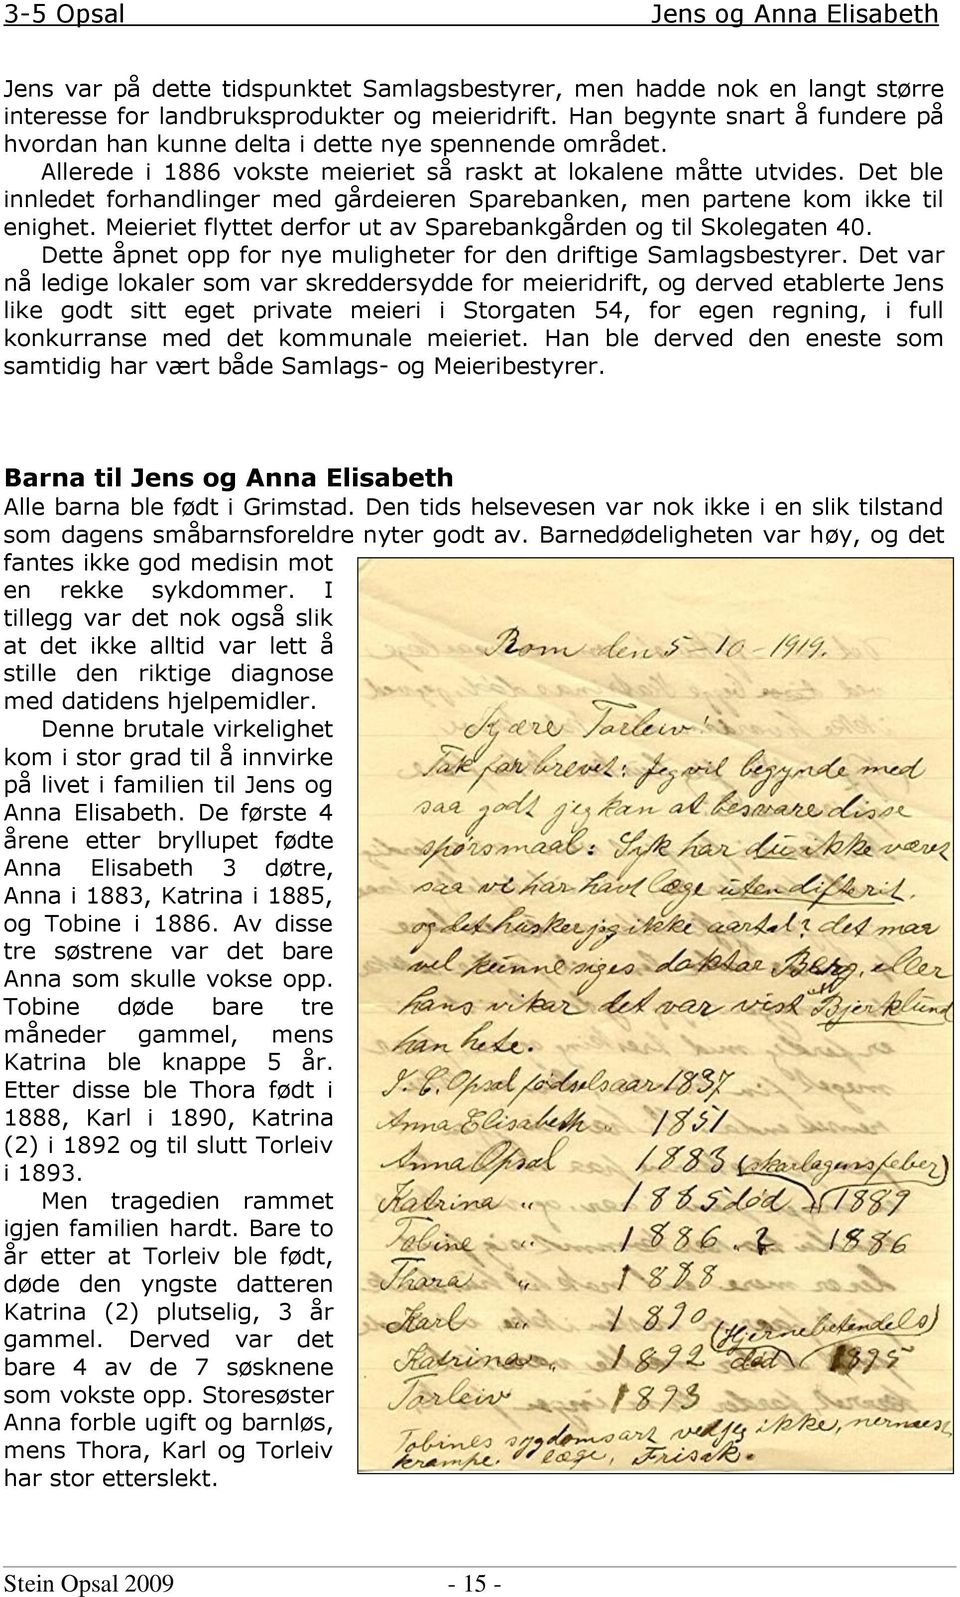 3-5 Opsal Jens og Anna Elisabeth
Jens var på dette tidspunktet Samlagsbestyrer, men hadde nok en langt større
interesse for landbruksprodukter og meieridrift. Han begynte snart å fundere på
hvordan han kunne delta i dette nye spennende området.
Allerede i 1886 vokste meieriet så raskt at lokalene måtte utvides. Det ble
innledet forhandlinger med gårdeieren Sparebanken, men partene kom ikke til
enighet. Meieriet flyttet derfor ut av Sparebankgården og til Skolegaten 40.
Dette åpnet opp for nye muligheter for den driftige Samlagsbestyrer. Det var
nå ledige lokaler som var skreddersydde for meieridrift, og derved etablerte Jens
like godt sitt eget private meieri i Storgaten 54, for egen regning, i full
konkurranse med det kommunale meieriet. Han ble derved den eneste som
samtidig har vært både Samlags- og Meieribestyrer.
Barna til Jens og Anna Elisabeth
Alle barna ble født i Grimstad. Den tids helsevesen var nok ikke i en slik tilstand
som dagens småbarnsforeldre nyter godt av. Barnedødeligheten var høy, og det
fantes ikke god medisin mot
en rekke sykdommer. I
tillegg var det nok også slik
at det ikke alltid var lett å
stille den riktige diagnose
med datidens hjelpemidler.
Denne brutale virkelighet
kom i stor grad til å innvirke
på livet i familien til Jens og
Anna Elisabeth. De første 4
årene etter bryllupet fødte
Anna Elisabeth 3 døtre,
Anna i 1883, Katrina i 1885,
og Tobine i 1886. Av disse
tre søstrene var det bare
Anna som skulle vokse opp.
Tobine døde bare tre
måneder gammel, mens
Katrina ble knappe 5 år.
Etter disse ble Thora født i
1888, Karl i 1890, Katrina
(2) i 1892 og til slutt Torleiv
i 1893.
Men tragedien rammet
igjen familien hardt. Bare to
år etter at Torleiv ble født,
døde den yngste datteren
Katrina (2) plutselig, 3 år
gammel. Derved var det
bare 4 av de 7 søsknene
som vokste opp. Storesøster
Anna forble ugift og barnløs,
mens Thora, Karl og Torleiv
har stor etterslekt.
Rom den 5-10-1919.
Kjære Torleiv!
Tak for brevet: Jeg vil begynde med
saa godt jeg kan at besvare disse
spørsmaal: Syk har du ikke været
saa vi har havt læge uten difterit.
og det husker jeg ikke aartal? det maa
vel kunne siges doktor Berg, eller
hans vikar det var vist Bjerklund
han hete.
J. C. Opsal fødselsaar 1837
Anna Elisabeth " 1851
Anna Opsal 1883 (skarlagensfeber)
Katrina " 1885 død 1889
Tobine " 1886 " ? 1886
Thora " 1888
Karl " 1890
Katrina " 1892 død (Hjernebetendels) 1895
Torleiv 1893
Tobines sygdomsart ved jeg ikke, nærmest
krampe. læge, Frisak.
Stein Opsal 2009 - 15 -